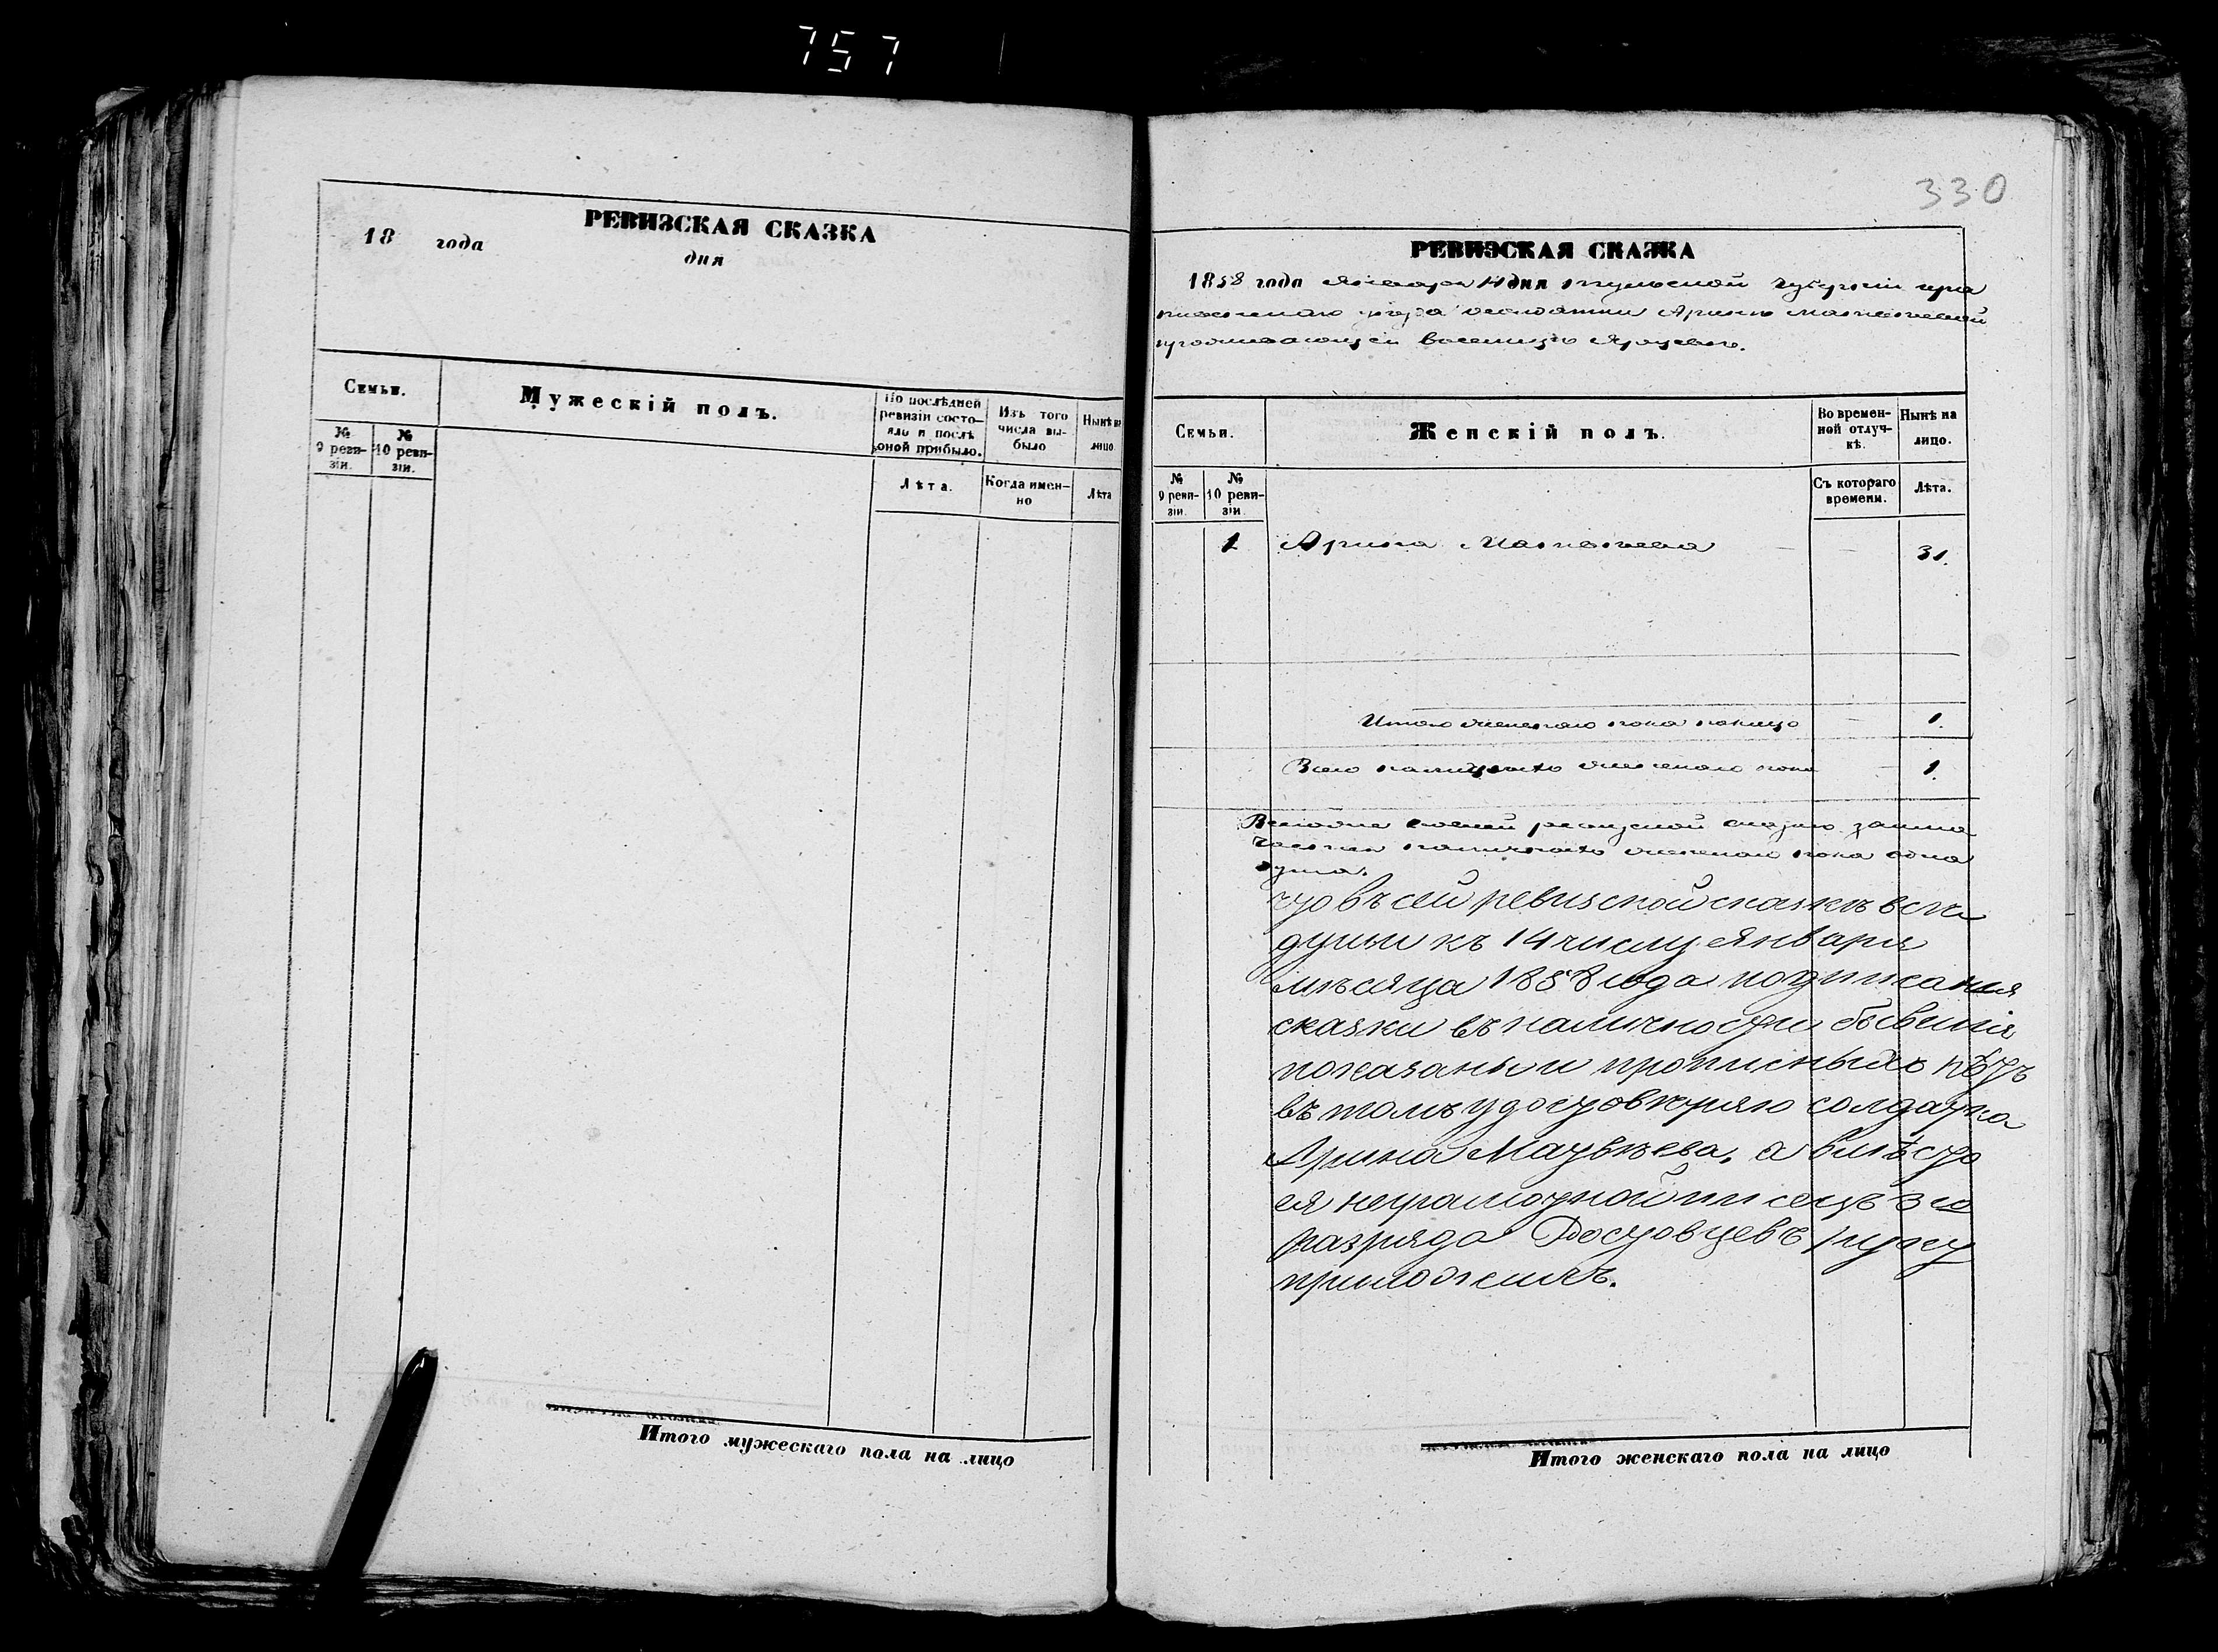 757
РЕВИЗСКАЯ СКАЗКА
18 года дня
Семьи.
Мужескій полъ.
По послѣдней ревизіи состояло и послѣ оной прибыло.
Изъ того числа выбыло
Нынѣ на лицо
№ 9 ревизіи.
№ 10 ревизіи.
Лѣта.
Когда именно
Лѣта
Итого мужескаго пола на лицо
330
РЕВИЗСКАЯ СКАЗКА
1858 года Января 14 дня Тульской губерніи Кра
пивенскаго уѣзда солдатки Арины Матвѣевой
проживающей в сельцѣ
Семьи.
Женскій полъ.
Во временной отлучкѣ.
Нынѣ на лицо.
№ 9 ревизіи.
№ 10 ревизіи.
Съ котораго времени.
Лѣта.
1 Арина Матвѣева — — 31.
Итого женскаго пола налицо — 1.
Всего наличныхъ женскаго пола — 1.
ревизской сказке
наличныхъ женскаго пола одна
душа.
Что въ сей ревизской сказкѣ всѣ
души къ 14 числу Января
мѣсяца 1858 года подписания
сказки въ наличности бывшія
показаны и прописныхъ нѣтъ
въ томъ удостовѣряю солдатка
Арина Матвѣева, а вмѣсто
ея неграмотной писецъ 3 го
разряда Достовцевъ руку
приложилъ.
Итого женскаго пола на лицо